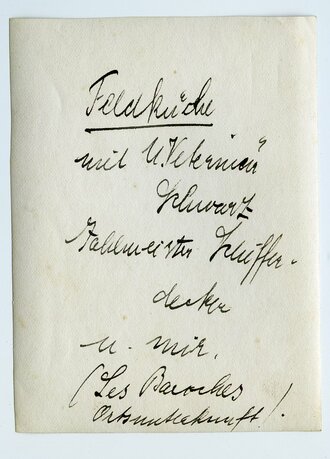 Feldküche
mit U. Veterinär
Schwarz
Zahlmeister Schiffer-
decker
u. mir.
(Les Baroches
Ortsunterkunft)!